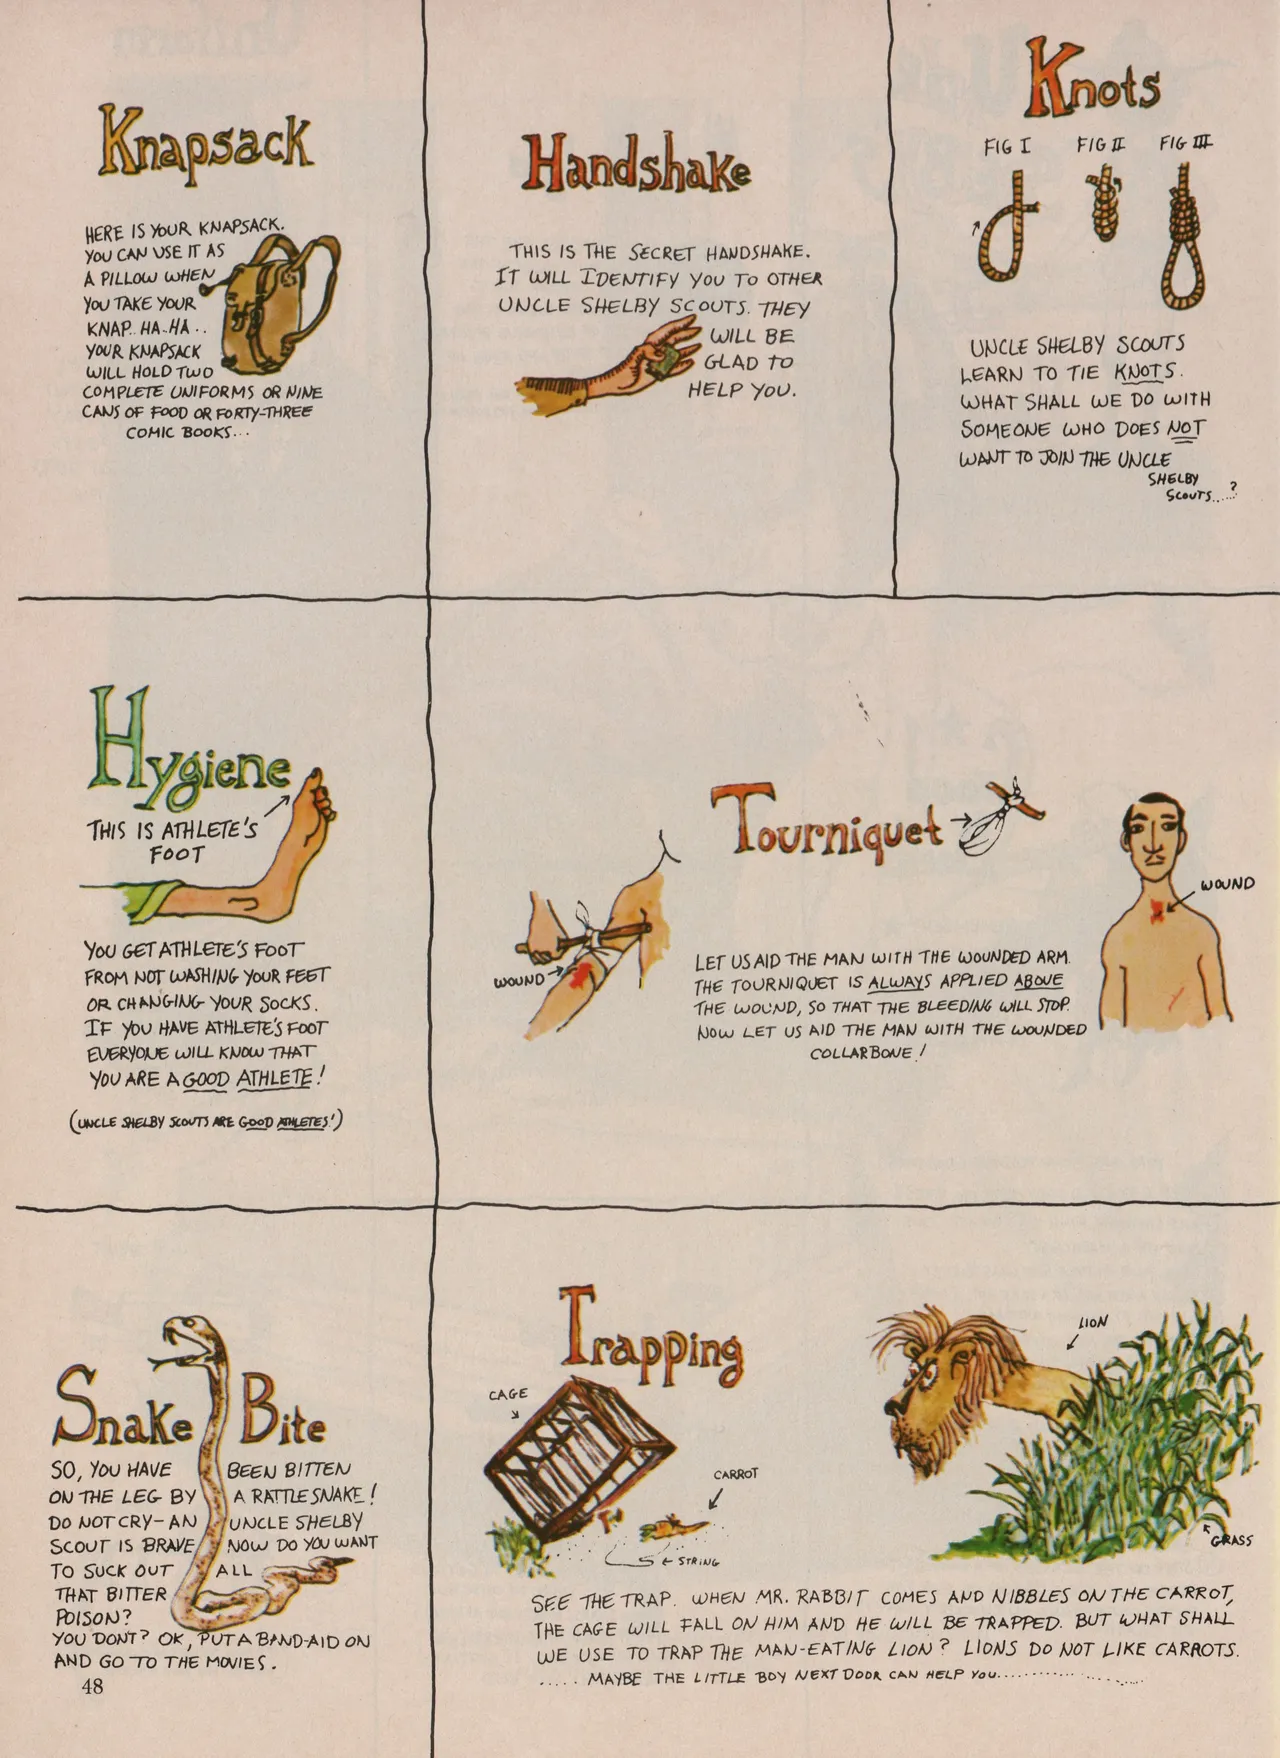 Knapsack
HERE IS YOUR KNAPSACK.
YOU CAN USE IT AS
A PILLOW WHEN
YOU TAKE YOUR
KNAP.. HA-HA..
YOUR KNAPSACK
WILL HOLD TWO
COMPLETE UNIFORMS OR NINE
CANS OF FOOD OR FORTY-THREE
COMIC BOOKS...
Handshake
THIS IS THE SECRET HANDSHAKE.
IT WILL IDENTIFY YOU TO OTHER
UNCLE SHELBY SCOUTS. THEY
WILL BE
GLAD TO
HELP YOU.
Knots
FIG I FIG II FIG III
UNCLE SHELBY SCOUTS
LEARN TO TIE KNOTS.
WHAT SHALL WE DO WITH
SOMEONE WHO DOES NOT
WANT TO JOIN THE UNCLE
SHELBY
SCOUTS.....?
Hygiene
THIS IS ATHLETE'S
FOOT
YOU GET ATHLETE'S FOOT
FROM NOT WASHING YOUR FEET
OR CHANGING YOUR SOCKS.
IF YOU HAVE ATHLETE'S FOOT
EVERYONE WILL KNOW THAT
YOU ARE A GOOD ATHLETE!
(UNCLE SHELBY SCOUTS ARE GOOD ATHLETES!)
Tourniquet
WOUND
WOUND
LET US AID THE MAN WITH THE WOUNDED ARM.
THE TOURNIQUET IS ALWAYS APPLIED ABOVE
THE WOUND, SO THAT THE BLEEDING WILL STOP.
NOW LET US AID THE MAN WITH THE WOUNDED
COLLARBONE!
Snake Bite
SO, YOU HAVE BEEN BITTEN
ON THE LEG BY A RATTLESNAKE!
DO NOT CRY-AN UNCLE SHELBY
SCOUT IS BRAVE NOW DO YOU WANT
TO SUCK OUT ALL
THAT BITTER
POISON?
YOU DON'T? OK, PUT A BAND-AID ON
AND GO TO THE MOVIES.
48
Trapping
CAGE
CARROT
STRING
LION
GRASS
SEE THE TRAP. WHEN MR. RABBIT COMES AND NIBBLES ON THE CARROT,
THE CAGE WILL FALL ON HIM AND HE WILL BE TRAPPED. BUT WHAT SHALL
WE USE TO TRAP THE MAN-EATING LION? LIONS DO NOT LIKE CARROTS.
.....MAYBE THE LITTLE BOY NEXT DOOR CAN HELP YOU....................